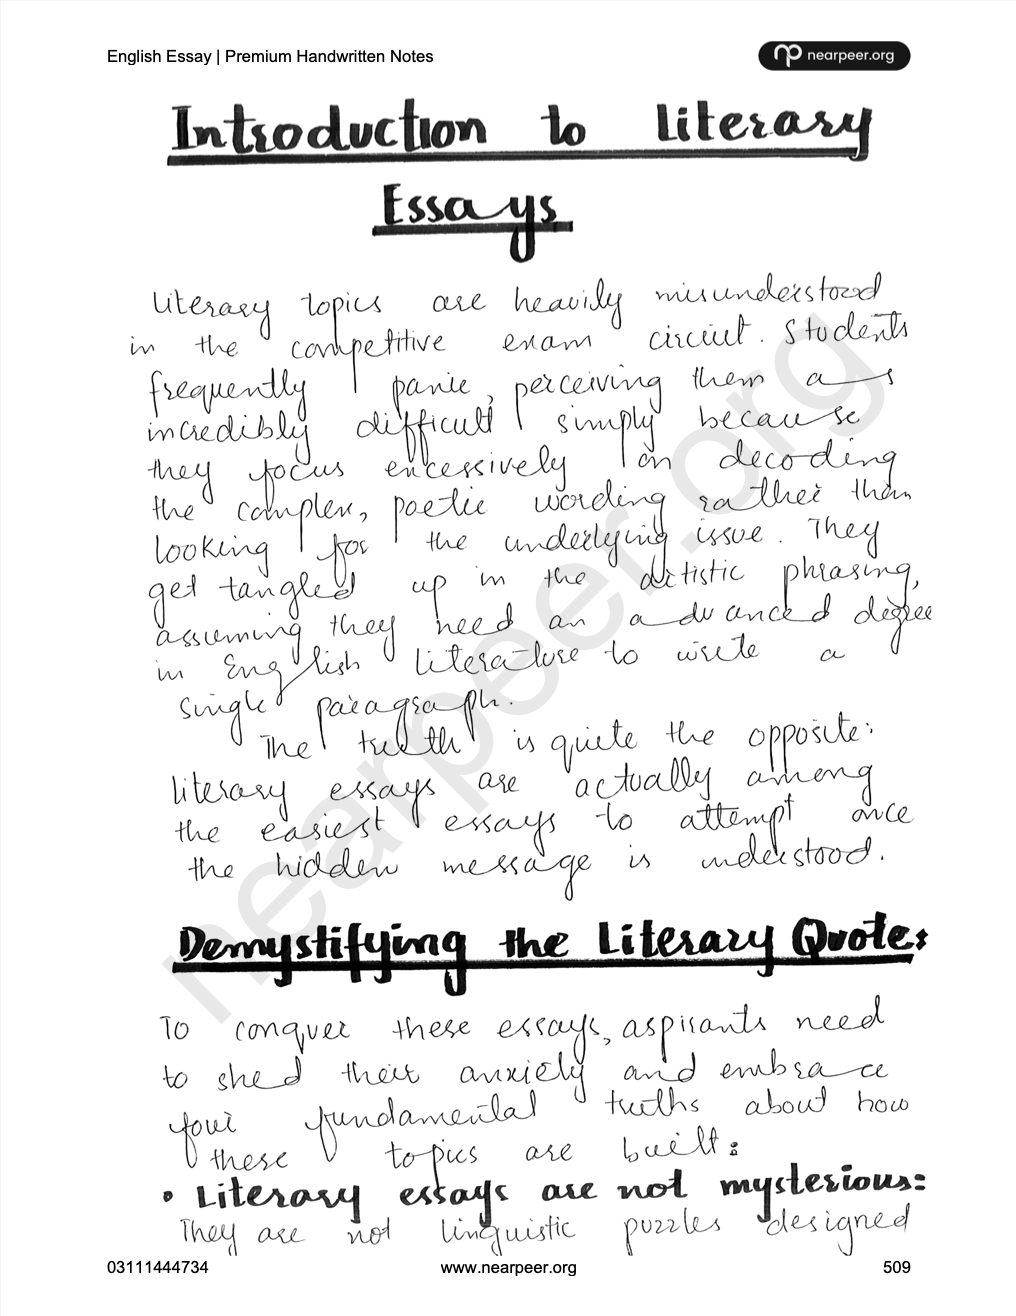 English Essay | Premium Handwritten Notes
nearpeer.org
Introduction to Literary
Essays
Literary topics are heavily misunderstood
in the competitive exam circuit. Students
frequently panic, perceiving them as
incredibly difficult simply because
they focus excessively on decoding
the complex, poetic wording rather than
looking for the underlying issue. They
get tangled up in the artistic phrasing,
assuming they need an advanced degree
in English literature to write a
single paragraph.
The truth is quite the opposite:
literary essays are actually among
the easiest essays to attempt once
the hidden message is understood.
Demystifying the Literary Quote:
To conquer these essays, aspirants need
to shed their anxiety and embrace
four fundamental truths about how
these topics are built:
• Literary essays are not mysterious:
They are not linguistic puzzles designed
nearpeer.org
03111444734
www.nearpeer.org
509